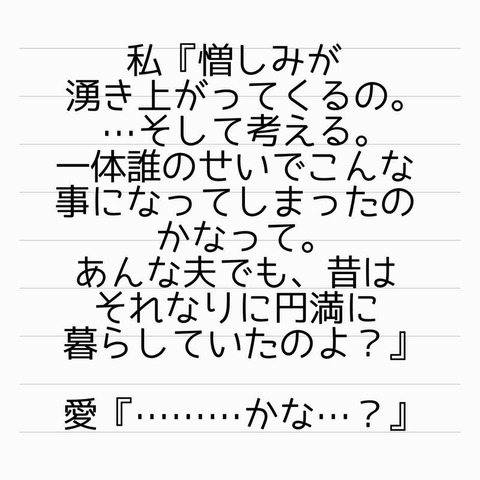 私『憎しみが
湧き上がってくるの。
…そして考える。
一体誰のせいでこんな
事になってしまったの
かなって。
あんな夫でも、昔は
それなりに円満に
暮らしていたのよ？』
愛『………かな…？』